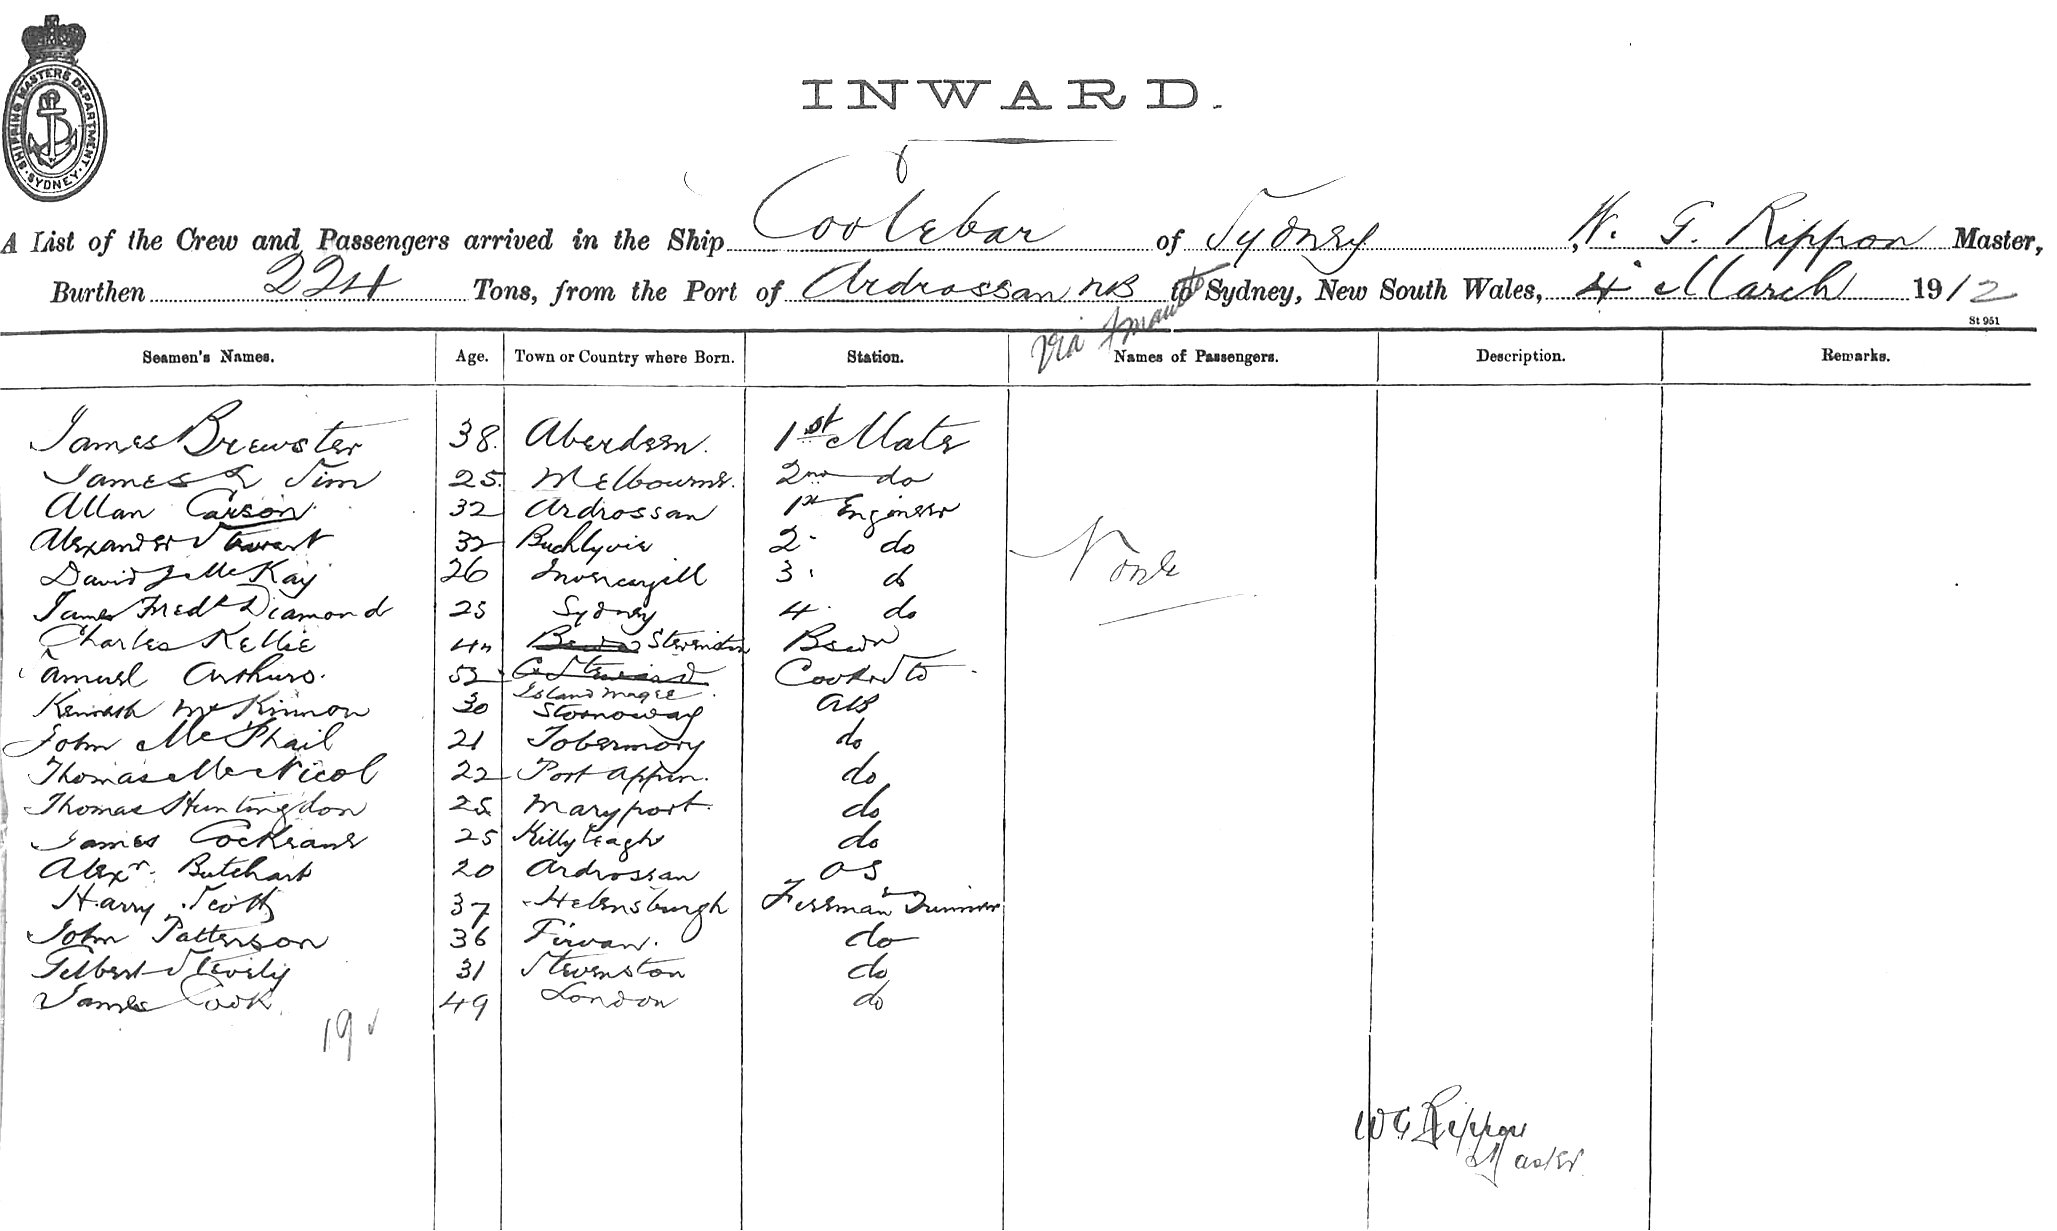 SHIPPING MASTERS DEPARTMENT
SYDNEY
INWARD.
A List of the Crew and Passengers arrived in the Ship Coolebar of Sydney, W. G. Rippon Master,
Burthen 224 Tons, from the Port of Ardrossan NB to Sydney, New South Wales, 4 March 1912
via
St 951
Seamen's Names. Age. Town or Country where Born. Station. Names of Passengers. Description. Remarks.
James Brewster 38. Aberdeen. 1st Mate
James L Sim 25. Melbourne. 2nd do
Allan Carson 32 Ardrossan 1st Engineer
Alexander Stewart 32 Buchlyvie 2 do
None
David J McKay 26 Invercargill 3 do
James Fredk Diamond 25 Sydney 4 do
Charles Kellie Stevenston Bswn
Samuel Arthurs. 52 Island Magee Cook & Std
Kenneth McKinnon 30 Stornoway AB
John McPhail 21 Tobermory do
Thomas McNicol 22 Port Appin. do
Thomas Huntingdon 25 Maryport. do
James Cockrane 25 Killyleagh do
Alexr. Butchart 20 Ardrossan OS
Harry Scott 37 Helensburgh Fireman & Trimmer
John Patterson 36 Girvan. do
Gilbert Stevely 31 Stevenston do
James Cook 49 London do
19
WG Rippon
Master